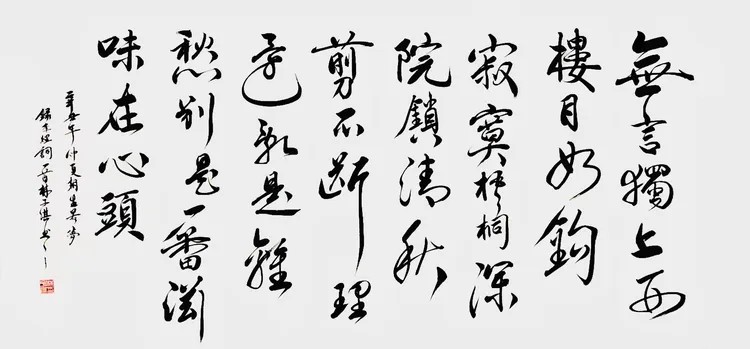 無言獨上西
樓月如鉤
寂寞梧桐深
院鎖清秋
剪不斷理
還亂是離
愁別是一番滋
味在心頭
辛丑年仲夏
錄李煜詞